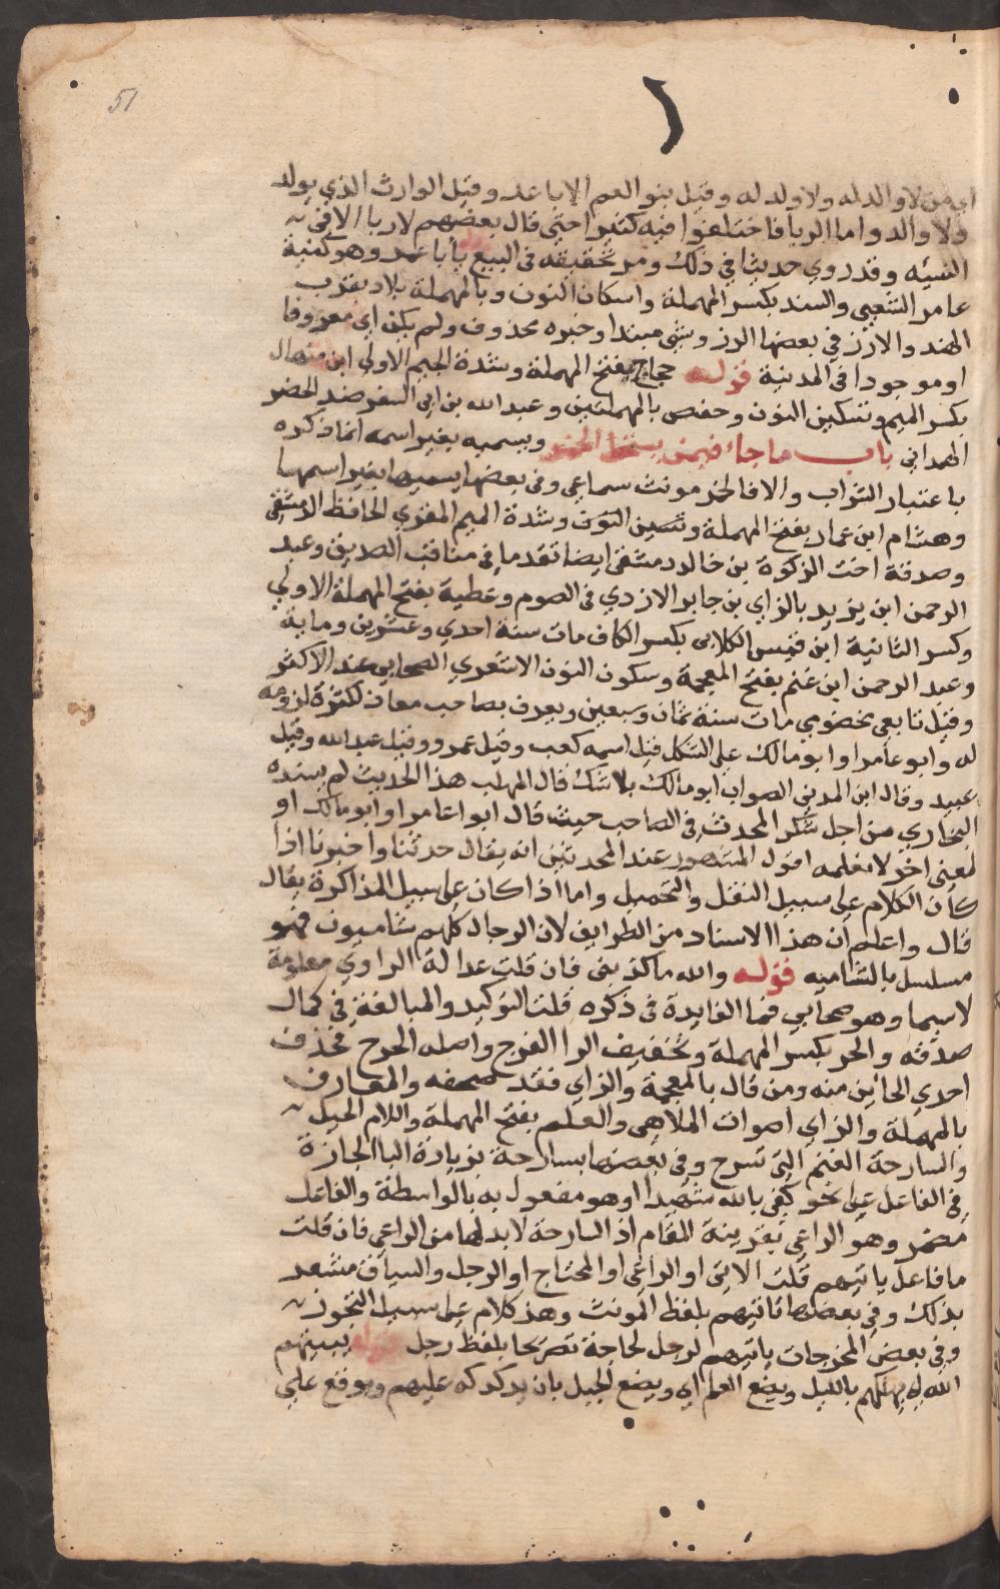 51
اي من لا والد له ولا ولد له وقيل بنو العم الاباعد وقيل الوارث الذي يولد
ولا والد واما الربا فاختلفوا فيه كثيرا حتى قال بعضهم لا ربا الا في
النسئه وقد روي حديثا في ذلك ومر تحقيقه في البيع يابا عمد وهو كنية
عامر الشعبي والسند بكسر المهملة واسكان النون وبالمهملة بلاد بقرب
الهند والارز في بعضها الرز وشي مبتدا وخبره محذوف ولم يكن اي معروفا
او موجودا في المدينة قوله حجاج بفتح المهملة وشدة الجيم الاولي ابن منهال
بكسر الميم وتسكين النون وحفص بالمهملتين وعبد الله بن ابي السفر ضد الحضر
الهمداني باب ما جاء فيمن يستحل الخمر ويسميه بغير اسمه انما ذكره
باعتبار الشراب والا فالخمر مونث سماعي وفي بعضها يسميها بغير اسمها
وهشام ابن عمار بفتح المهملة وشدة الميم المقري الحافظ الدمشقي
وصدقة اخت الزكوة بن خالد دمشقي ايضا تقدما في مناقب الصديق وعبد
الرحمن ابن يزيد بالزاي بن جابر الازدي في الصوم وعطية بفتح المهملة الاولي
وكسر الثانية ابن قيس الكلابي بكسر الكاف مات سنة احدي وعشرين وماية
وعبد الرحمن ابن غنم بفتح المعجمة وسكون النون الاشعري الصحابي عند الاكثر
وقيل تابعي مخضرمي مات سنة ثمان وسبعين ويعرف بصاحب معاذ لكثرة لزومه
له وابو عامر او ابو مالك علي الشكل قيل اسمه كعب وقيل عمرو وقيل عبد الله وقيل
عبيد وقال ابن المديني الصواب ابو مالك بلا شك قال المهلب هذا الحديث لم يسنده
البخاري من اجل شكر المحدث في الصاحب حيث قال ابوا عامر او ابو مالك او
لمعني اخر لا نعلمه اقول المشهور عند المحدثين انه يقال حدثنا واخبرنا اذا
كان الكلام علي سبيل النقل والتحميل واما اذا كان علي سبيل المذاكرة يقال
قال واعلم ان هذا الاسناد من الطرايف لان الرجال كلهم شاميون فهو
مسلسل بالشاميه قوله والله ما كذبني فان قلت عدالة الراوي معلومة
لا سيما وهو صحابي فما الفايدة في ذكره قلت التوكيد والمبالغة في كمال
صدقه والحر بكسر المهملة وتخفيف الرا الفرج واصله الحرح فحذف
احدي الحائين منه ومن قال بالمعجمة والزاي فقد صحفه والمعارف
بالمهملة والزاي اصوات الملاهي والعلم بفتح المهملة واللام الجبل
والسارحة الغنم التي تسرح وفي بعضها بسارحة بزيادة البا الجازة
في الفاعل علي نحو كفي بالله شهيدا او هو مفعول به بالواسطة والفاعل
مضمر وهو الراعي بقرينة المقام اذ السارحة لا بد لها من الراعي فان قلت
ما فاعل ياتيهم قلت الاتي او الراعي او المحتاج او الرجل والسياق مشعر
بذلك وفي بعضها تاتيهم بلفظ المونث وهذ كلام علي سبيل التجوز
وفي بعض المخرجات ياتيهم لرجل لحاجة تصريحا بلفظ رجل قوله يبيتهم
الله اي يهلكهم بالليل ويضع العلم اي ويضع الجبل بان يدكدكه عليهم ويوقع علي